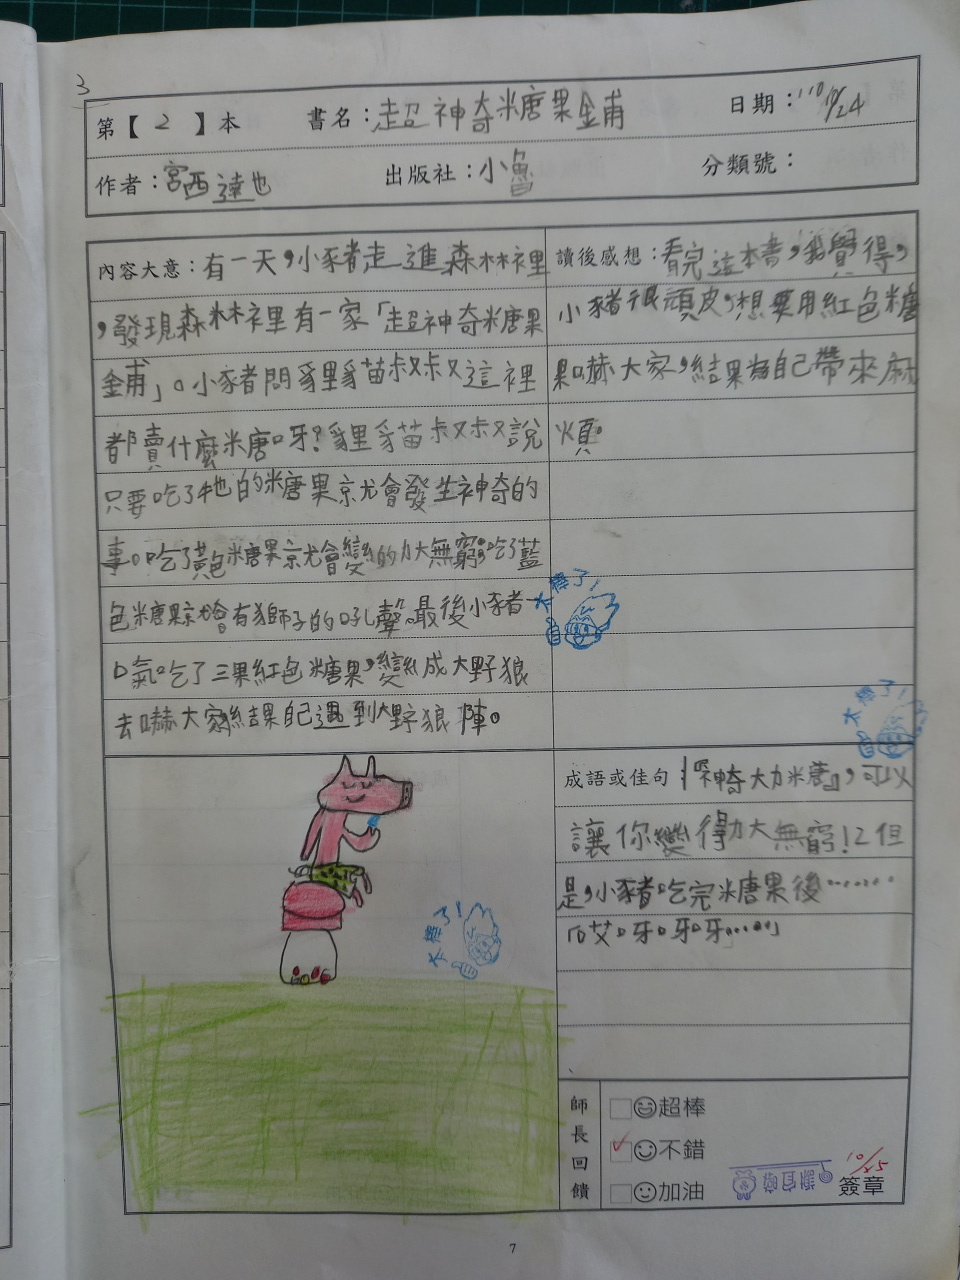 3
第【 2 】本 書名：超神奇糖果鋪 日期：110/10/24
作者：宮西達也 出版社：小魯 分類號：
內容大意：有一天，小豬走進森林裡
，發現森林裡有一家「超神奇糖果
鋪」。小豬問狸貓叔叔這裡
都賣什麼糖呀？狸貓叔叔說
只要吃了牠的糖果就會發生神奇的
事。吃了黃色糖果就會變的力大無窮；吃了藍
色糖果就會有獅子的吼聲。最後小豬一
口氣吃了三果紅色糖果，變成大野狼
去嚇大家，結果自己遇到大野狼陣。
讀後感想：看完這本書，我覺得，
小豬很頑皮，想要用紅色糖
果嚇大家，結果為自己帶來麻
煩。
太棒了！
太棒了！
成語或佳句：「『神奇大力糖』，可以
讓你變得力大無窮！」但
是，小豬吃完糖果後……
「哎呀呀呀……」
太棒了！
師長回饋
超棒
不錯
加油
10/25
簽章
7